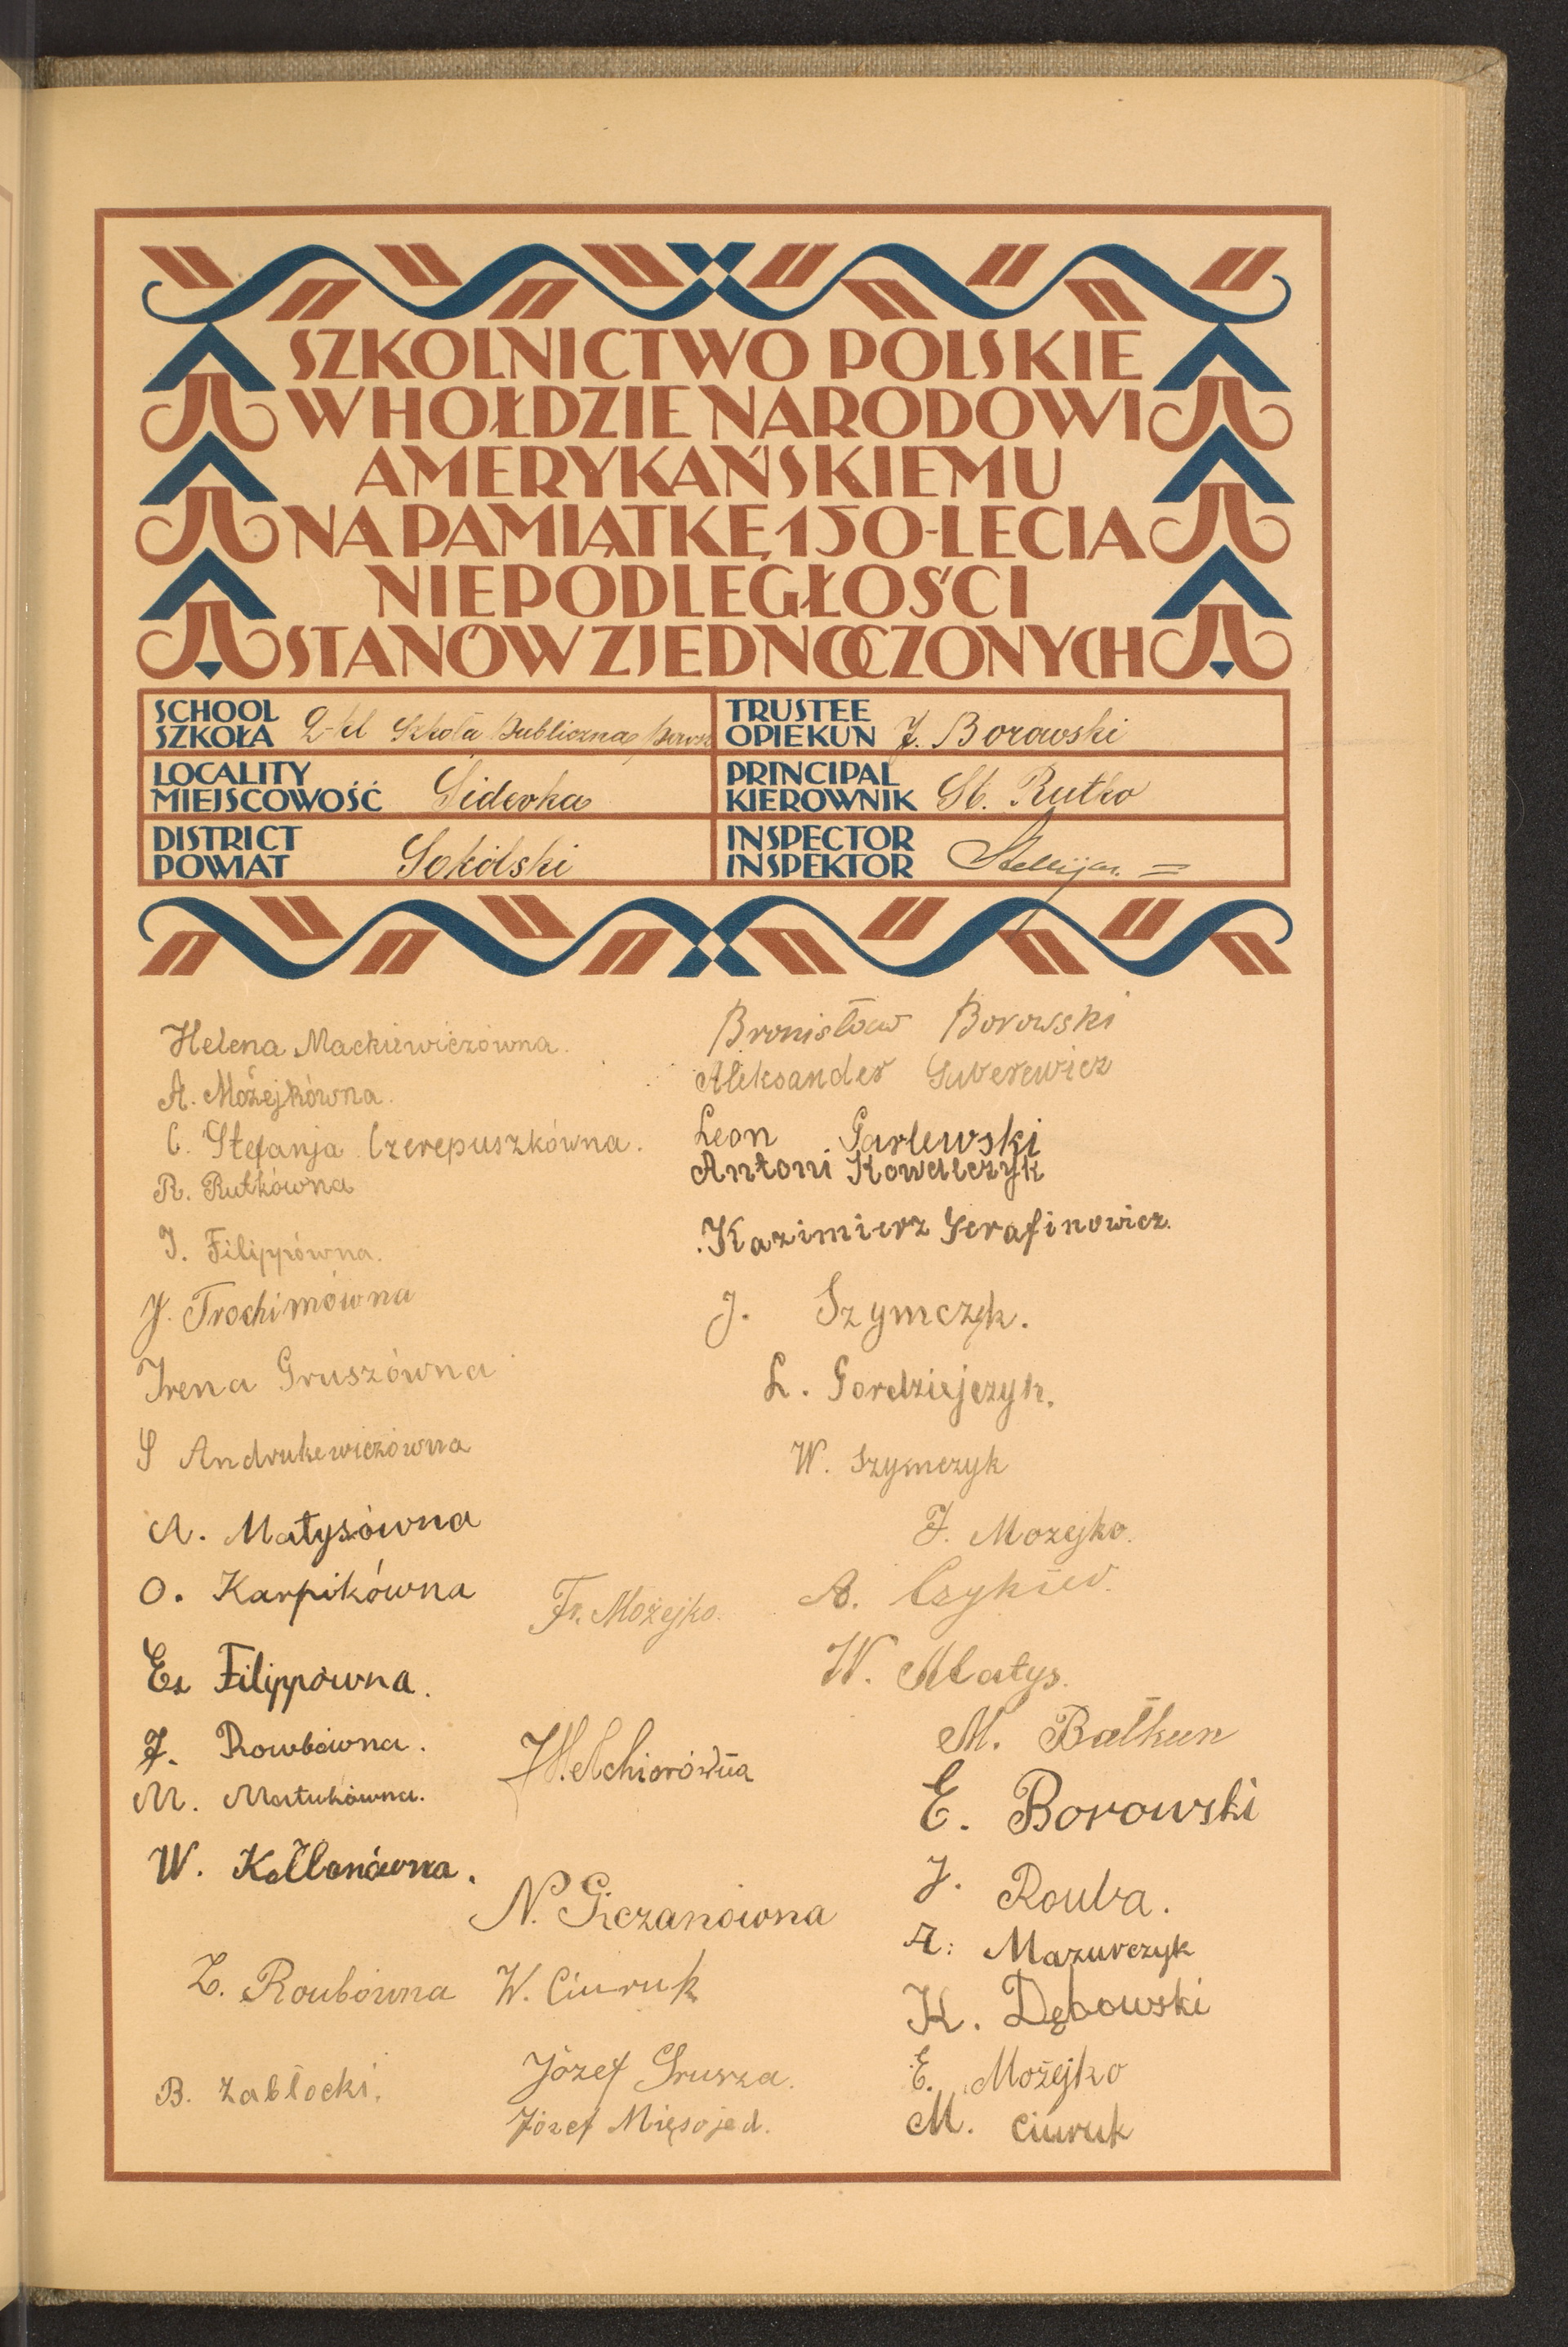 SZKOLNICTWO POLSKIE
W HOŁDZIE NARODOWI
AMERYKAŃSKIEMU
NA PAMIĄTKĘ 150-LECIA
NIEPODLEGŁOŚCI
STANÓW ZJEDNOCZONYCH
SCHOOL
SZKOŁA 2-kl Szkoła Publiczna Powsz
TRUSTEE
OPIEKUN J. Borowski
LOCALITY
MIEJSCOWOŚĆ Siderka
PRINCIPAL
KIEROWNIK St. Rutko
DISTRICT
POWIAT Sokólski
INSPECTOR
INSPEKTOR
Helena Mackiewiczówna.
A. Możejkówna.
C. Stefanja Czerepuszkówna.
R. Rutkówna
J. Filippówna.
J. Trochimówna
Irena Gruszówna
S Andrukewiczówna
A. Matysówna
O. Karpikówna
Filippówna.
J. Rowbówna.
M. Matukówna.
W. Kołłonówna.
Z. Roubówna
B. Zabłocki.
Fr. Możejko.
W. Melchiorówna
N. Giczanówna
W. Ciuruk
Józef Grusza.
Józef Mięsojed.
Bronisław Borowski
Aleksander Suverewicz
Leon Garlewski
Antoni Kowalczyk
Kazimierz Serafinowicz.
J. Szymczyk.
L. Gordziejczyk.
W. Szymczyk
F. Możejko.
A. Czykier.
W. Matys.
M. Bałkun
E. Borowski
J. Rouba.
A. Mazurczyk
K. Dębowski
E. Możejko
M. Ciuruk